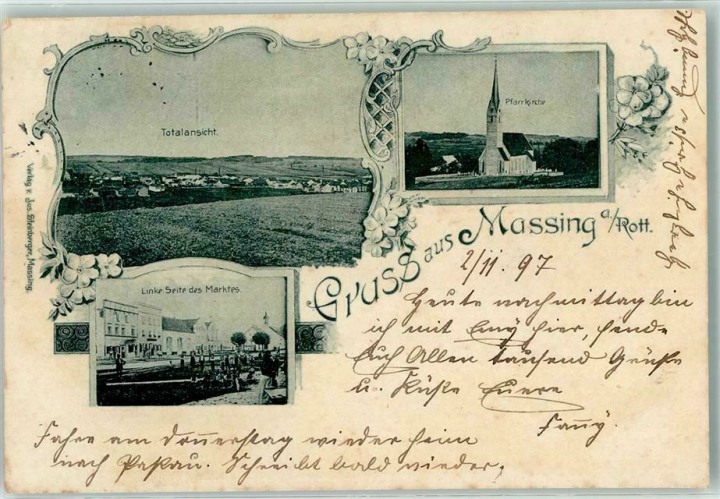 Totalansicht.
Pfarrkirche
Verlag v. Jos. Ettenberger, Massing.
Linke Seite des Marktes.
Gruss aus Massing a/Rott.
2/11. 97
Heute nachmittag bin
ich mit Emÿ hier, sende
Euch Allen tausend Grüße
u. Küße Euere
Fanÿ.
Fahre am Donnerstag wieder heim
nach Paßau. Schreibt bald wieder.